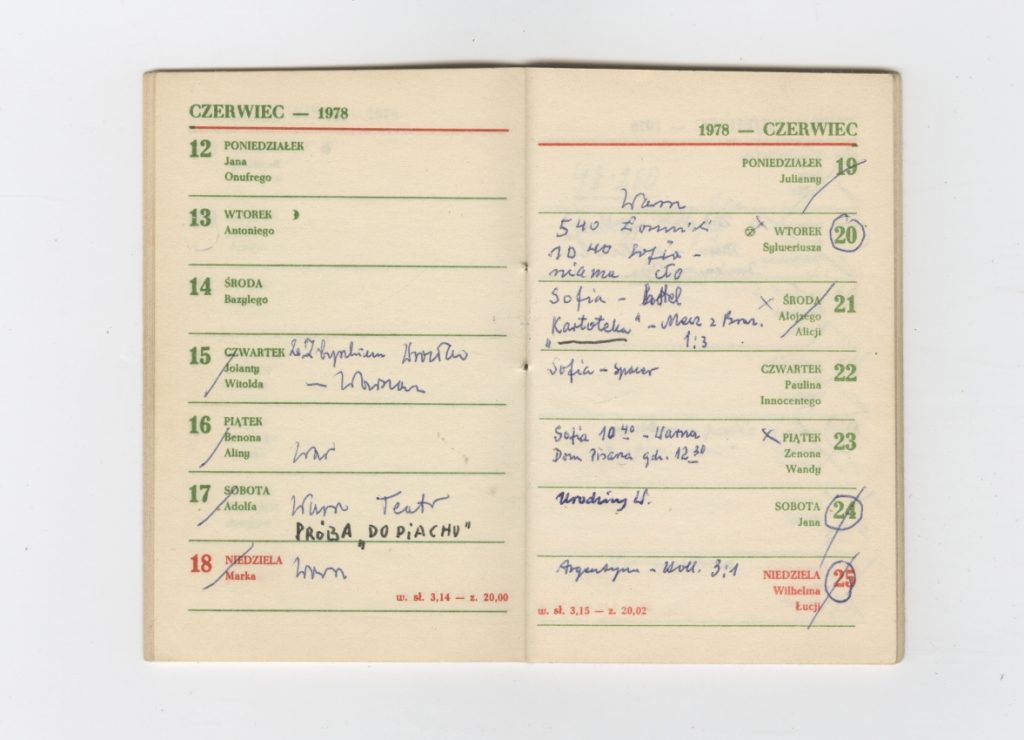 CZERWIEC — 1978
12 PONIEDZIAŁEK
Jana
Onufrego
13 WTOREK
Antoniego
14 ŚRODA
Bazylego
15 CZWARTEK
Jolanty
Witolda
16 PIĄTEK
Benona
Aliny
War
17 SOBOTA
Adolfa
Warn Teatr
PRÓBA „DO PIACHU"
18 NIEDZIELA
Marka
Warn
w. sł. 3,14 — z. 20,00
1978 — CZERWIEC
PONIEDZIAŁEK 19
Julianny
Warn
WTOREK 20
Sylweriusza
540
10 40 Sofia –
niama cło
ŚRODA 21
Alojzego
Alicji
Sofia – hotel
„Kartoteka" – Mecz z Braz.
1:3
CZWARTEK 22
Paulina
Innocentego
Sofia – spacer
PIĄTEK 23
Zenona
Wandy
Sofia 10 40 – Warna
Dom Pisarza gdz. 12 30
SOBOTA 24
Jana
Urodziny W.
NIEDZIELA 25
Wilhelma
Łucji
Argentyna – Holl. 3:1
w. sł. 3,15 — z. 20,02